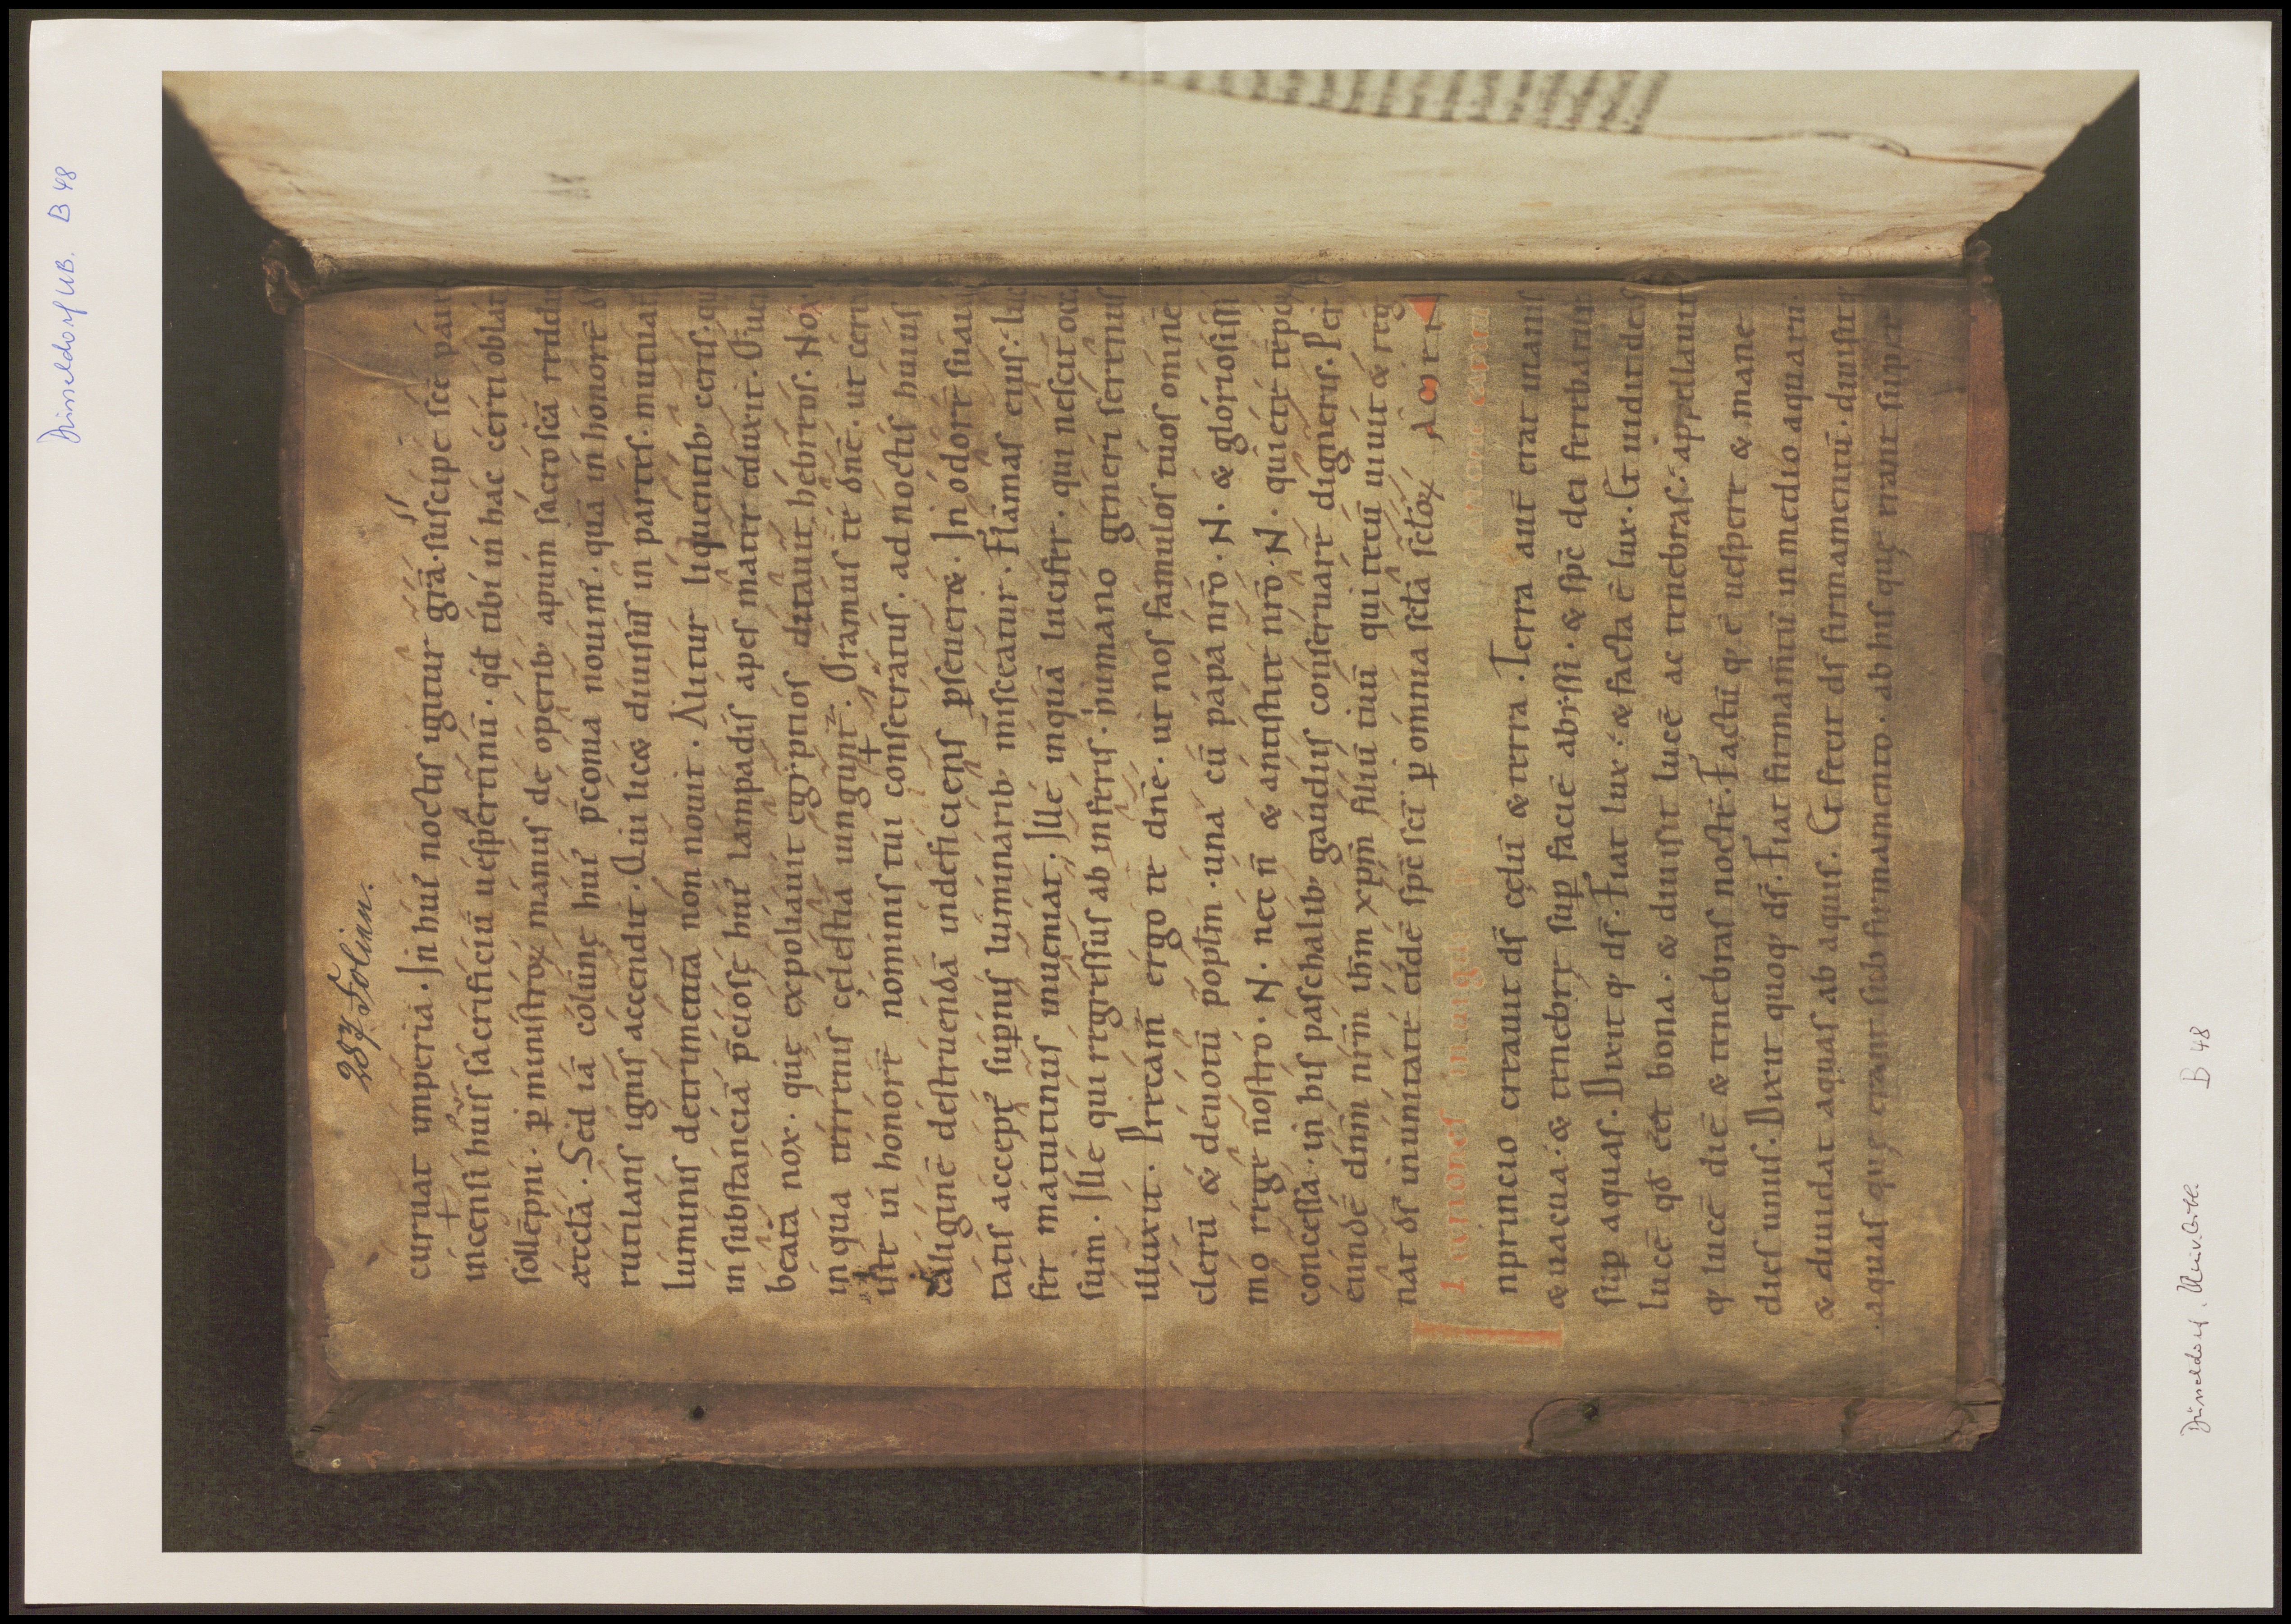 Düsseldorf UB. B 48
287 Folien.
curuat imperia. In hui᷒ noctis igitur grā. suscipe scē pat
incensi huius sacrificiū uespertinū. qd tibi in hac cerei oblat
sollēpni. ꝑ ministroꝝ manus de operibꝰ apum sacrosc̄ā reddit
æccl̄a. Sed iā colūnę huiꝰ p̄conia nouimꝰ. quā in honorē d
rutilans ignis accendit. Qui lic& diuisus in partes. mutuati
luminis detrimenta non nouit. Alitur liquentibꝰ ceris. qua
in substanciā p̄ciosę huiꝰ lampadis apes mater eduxit. O uer
beata nox. quę expoliauit egyptios ditauit hebreos. Nox
in qua terrenis cęlestia iungunt᷒. Oramus te dn̄e. ut cere
iste in honorē nominis tui consecratus. ad noctis huius
caliginē destruendā indeficiens ꝑseuer&. In odorē suaui
tatis accept᷒ supernis luminaribꝰ misceatur. Flāmas eius luc
fer matutinus inueniat. Ille inquā lucifer. qui nescit occa
sum. Ille qui regressus ab inferis. humano generi serenus
illuxit. Precam᷒ ergo te dn̄e. ut nos famulos tuos omnē
clerū & deuotū popl̄m. una cū papa nr̄o. N. & gloriosissi
mo rege nostro. N. nec n̄ & antistite nr̄o. N. quiete tēpoꝝ
concessa. in his paschalibꝰ gaudiis conseruare digneris. Per
eundē dn̄m nr̄m ihm xpm filiū tuū qui tecū uiuit & reg
nat ds̄ in unitate eidē spc̄ sc̄i ꝑ omnia scl̄a scl̄oꝝ AMEN
nprincio creauit ds̄ cęlū & terra. Terra aut̄ erat inanis
& uacua. & tenebre sup̱ faciē abyssi. & spc̄ dei ferebatur
sup̱ aquas. Dixit qꝫ ds̄. Fiat lux. & facta ē lux. Et uidit deus
lucē qd̄ ēēt bona. & diuisit lucē ac tenebras. appellauit
qꝫ lucē diē & tenebras noctē. Factū qꝫ ē uespere & mane
dies unus. Dixit quoqꝫ ds̄. Fiat firmam̄tū in medio aquaru.
& diuidat aquas ab aquis. Et fecit ds̄ firmamentū. diuisitqꝫ
aquas quę erant sub firmamento. ab his quę erant super
Düsseldorf, Univ. Bibl. B 48